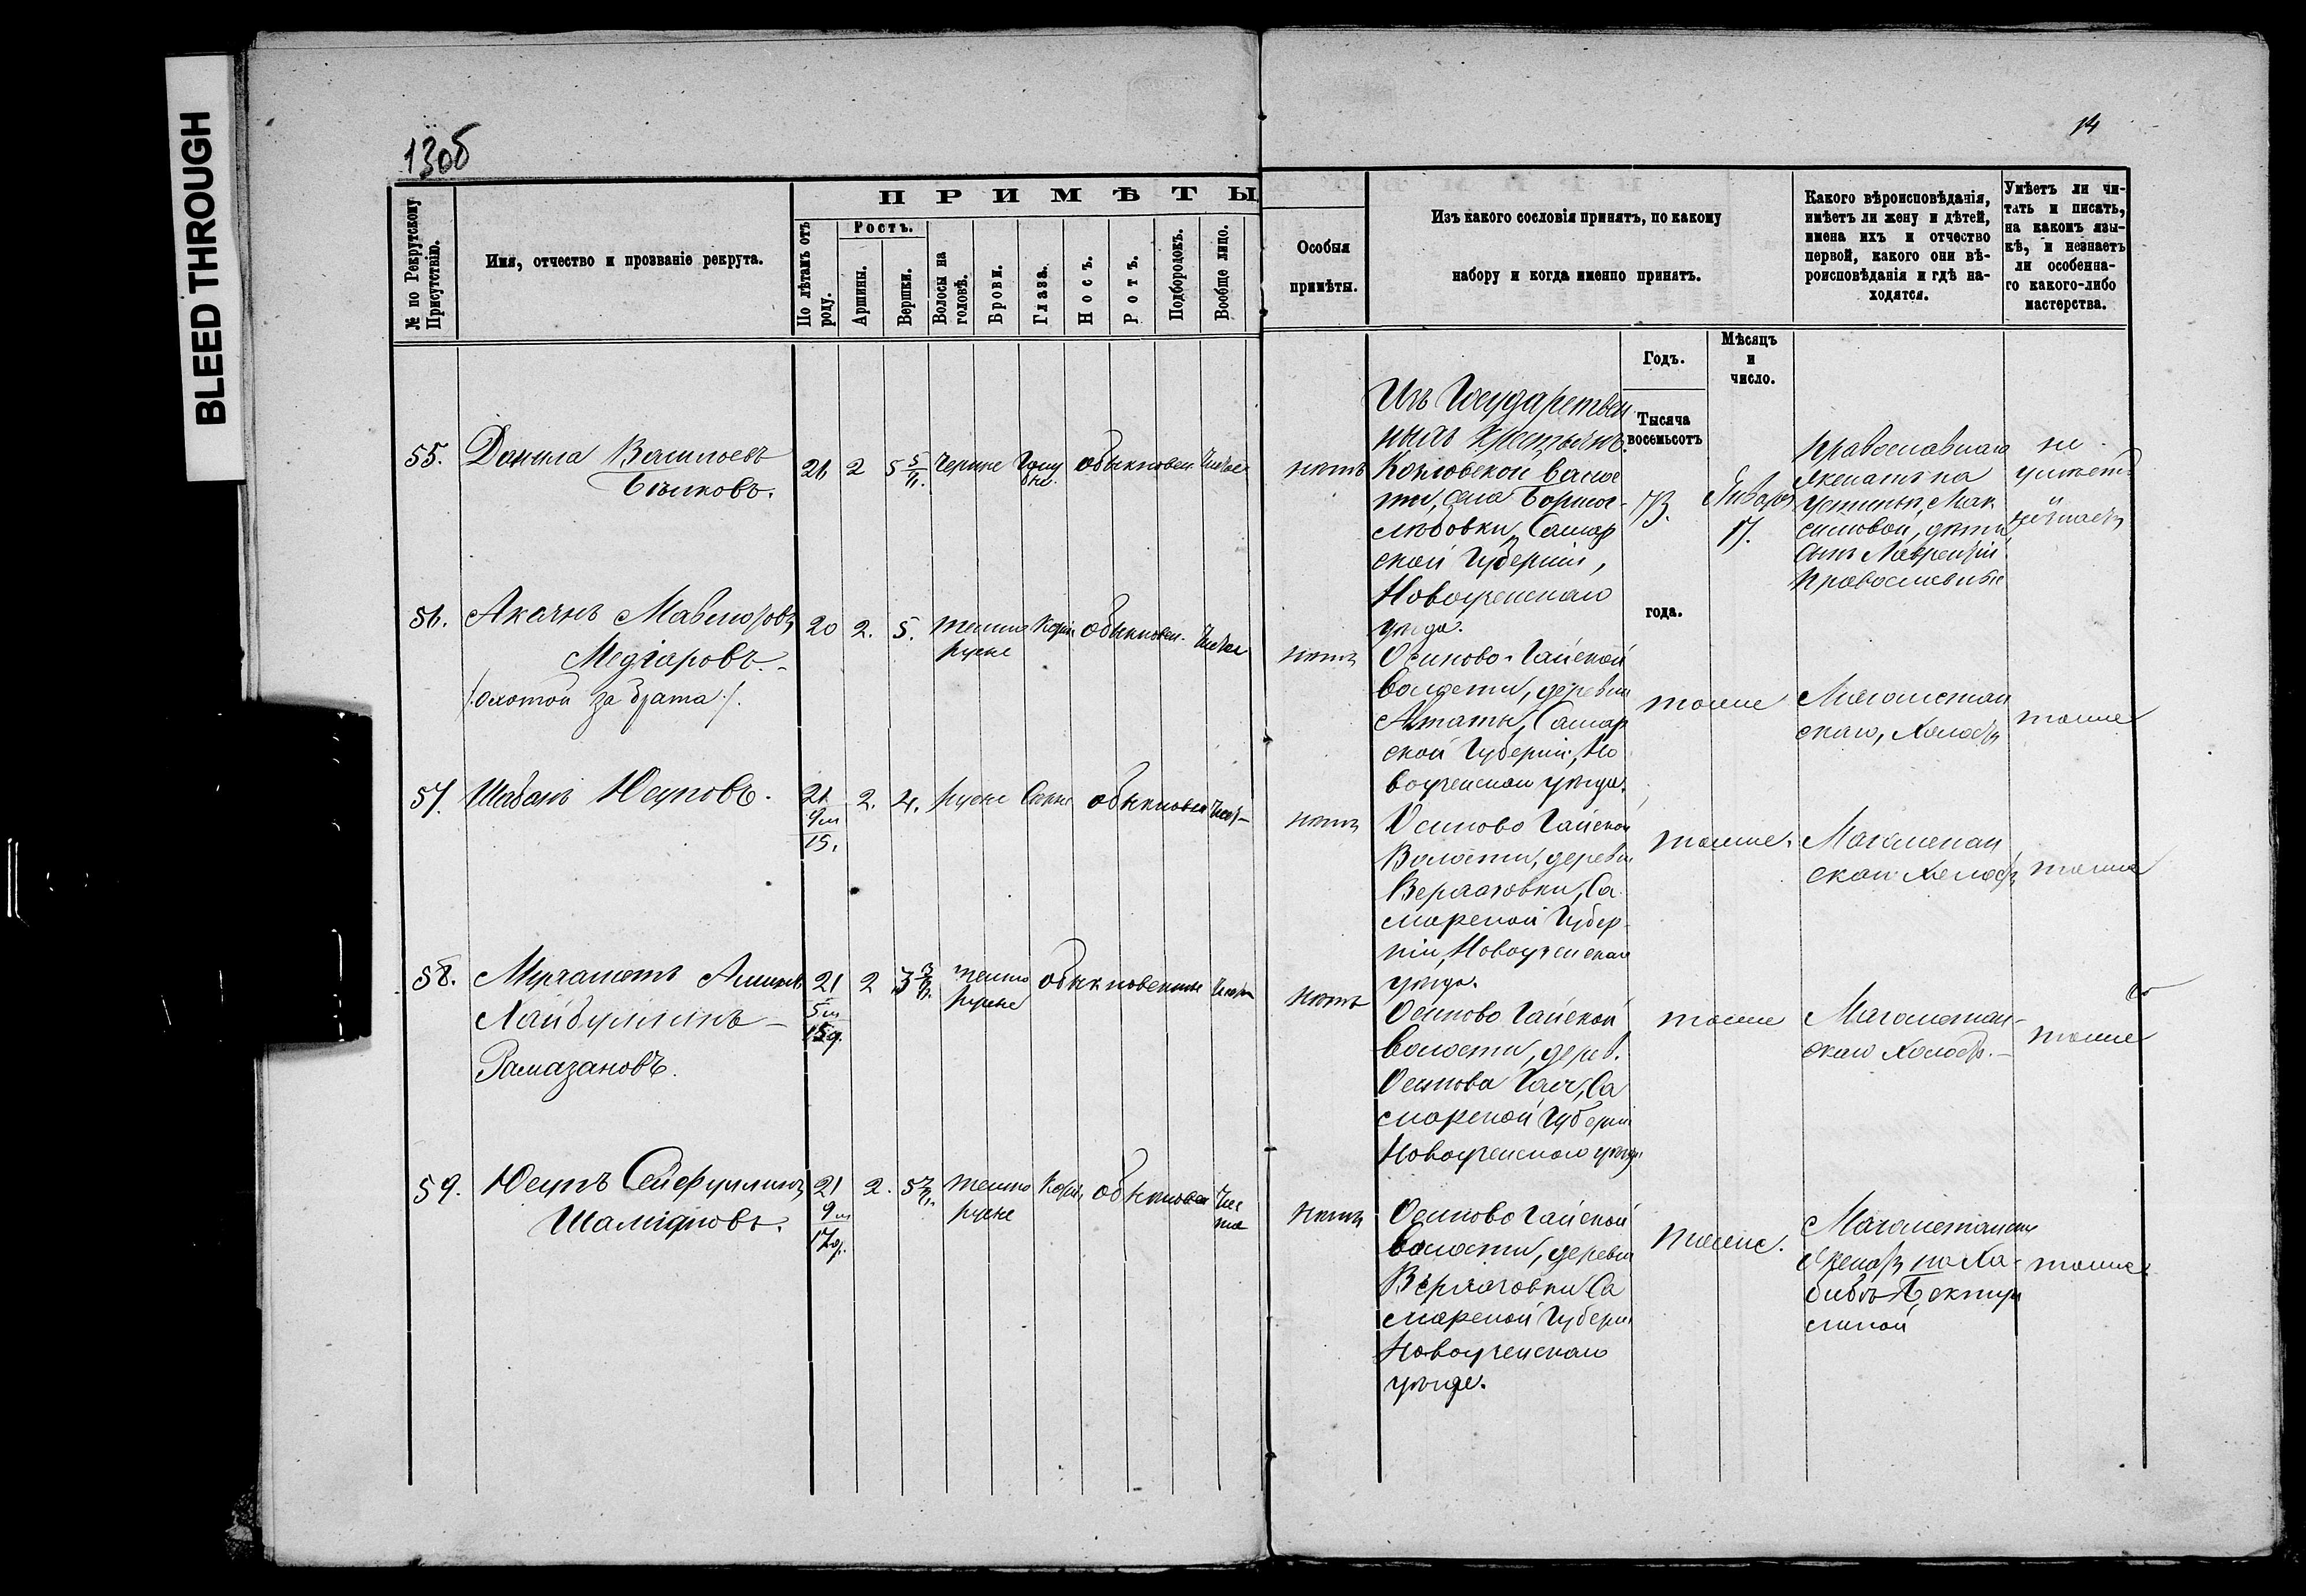 BLEED THROUGH
13об
14
№ по Рекрутскому Присутствію.
Имя, отчество и прозваніе рекрута.
ПРИМѢТЫ
По лѣтамъ отъ роду.
Ростъ.
Аршины.
Вершки.
Волосы на головѣ.
Брови.
Глаза.
Носъ.
Ротъ.
Подбородокъ.
Вообще лицо.
Особыя
примѣты.
Изъ какого сословія принятъ, по какому
набору и когда именно принятъ.
Годъ.
Мѣсяцъ
и
число.
Тысяча
восемьсотъ
года.
Какого вѣроисповѣданія,
имѣетъ ли жену и дѣтей,
имена ихъ и отчество
первой, какого они вѣ-
роисповѣданія и гдѣ на-
ходятся.
Умѣетъ ли чи-
тать и писать,
на какомъ язы-
кѣ, и незнаетъ
ли особенна-
го какого-либо
мастерства.
55.
Данила Васильевъ
21 2 5
обыкновен
нѣтъ
Изъ Государствен
ныхъ крестьянъ.
Козловской волос
ти, села
любовки, Самар
ской Губерніи,
Новоузенскаго
уѣзда.
73.
Января
17.
православнаго
женатъ на
Устиньѣ Мак
симовой, дѣти
сынъ Лаврентій
православные
не
умѣетъ
и
незнаетъ
56.
20 2. 5. темно
русые
Каріе обыкновен.
нѣтъ
/Охотой за брата/.
Осиново-Гайской
волости, деревни
Алтаты, Самар
ской Губерніи, Но
воузенскаго уѣзда.
тоже
Магометан
скаго, холостъ
тоже
57.
Шабанъ Юсуповъ.
21
9 м
15.
2. 4. русые Сѣрые обыкновен
нѣтъ
Осиново Гайской
Волости, деревни
Верхазовки, Са
марской Губер
ніи, Новоузенскаго
уѣзда.
тоже.
холостъ
тоже
58.
Рамазановъ.
21
5 м
15 д.
2 3
темно
русые
обыкновенные
нѣтъ
Осиново Гайской
волости, дерев.
Осинова Гая, Са
марской Губерніи
Новоузенскаго уѣзда
тоже
Магометан-
скаго холостъ.
тоже
59.
Юсупъ Сейфуллинъ
21
9 м
17 д.
2. 5
темно
русые
Каріе обыкновен
Чис
тое
нѣтъ
Осиново Гайской
волости, деревни
Верхазовки Са
марской Губерніи
Новоузенскаго
уѣзда.
тоже.
Магометанскаго
женатъ на Ха-
бибѣ
тоже